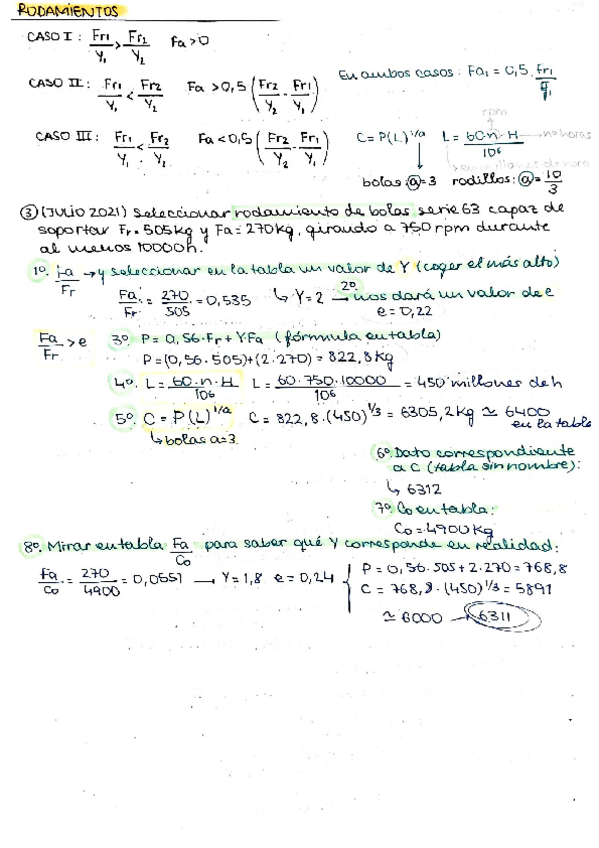 RODAMIENTOS
CASO I: Fr1/Y1 > Fr2/Y2 Fa>0
CASO II: Fr1/Y1 < Fr2/Y2 Fa>0,5(Fr2/Y2 - Fr1/Y1) En ambos casos: Fa1=0,5.Fr1/
rpm
CASO III: Fr1/Y1 < Fr2/Y2 Fa<0,5(Fr2/Y2 - Fr1/Y1) C=P(L)^1/a L=60.n.H/10⁶ nº horas
bolas: a=3 rodillos: a=10/3
③ (JULIO 2021) Seleccionar rodamiento de bolas serie 63 capaz de
soportar Fr=505kg y Fa=270kg, girando a 750rpm durante
al menos 10000h.
1º. Fa/Fr → y seleccionar en la tabla un valor de Y (coger el más alto)
Fa/Fr = 270/505 = 0,535 ↳ Y=2 2º→ nos dará un valor de e
e=0,22
Fa/Fr > e 3º. P=0,56.Fr+Y.Fa (fórmula en tabla)
P=(0,56.505)+(2.270)=822,8kg
4º. L=60.n.H/10⁶ L=60.750.10000/10⁶ = 450 millones de h
5º. C=P(L)^1/a C=822,8.(450)^1/3=6305,2kg ≃ 6400
en la tabla
↳ bolas a=3.
6º. Dato correspondiente
a C (tabla sin nombre):
↳ 6312
7º. Co en tabla:
Co=4900kg
8º. Mirar en tabla Fa/Co para saber qué Y corresponde en realidad:
Fa/Co = 270/4900 = 0,0551 → Y=1,8 e=0,24 { P=0,56.505+2.270=768,8
C=768,8.(450)^1/3=5891
≃ 6000 → 6311